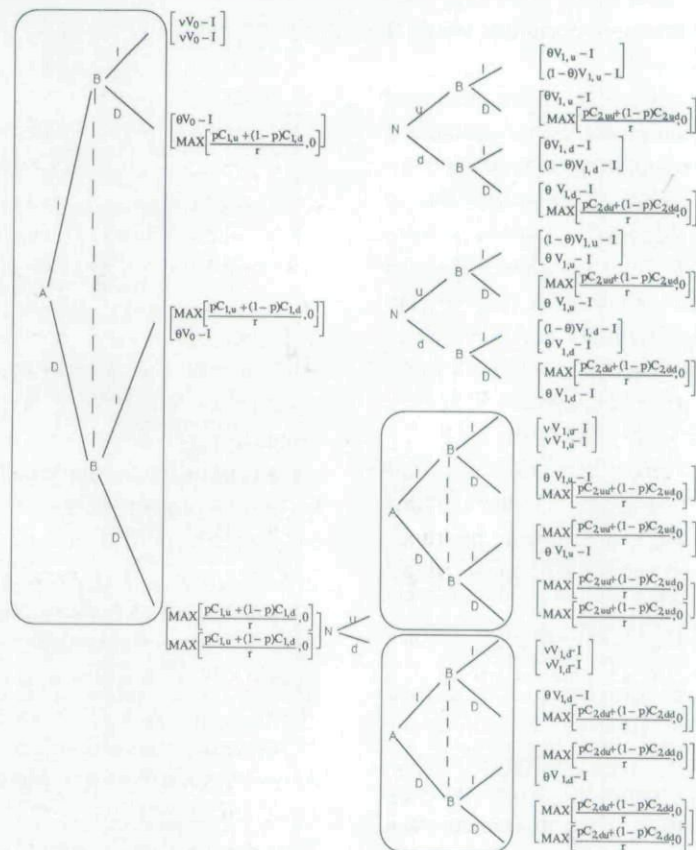 A
I
D
B
I
D
B
I
D
[νV₀ – I
νV₀ – I]
[θV₀ – I
MAX[(pC₁,u + (1 – p)C₁,d)/r, 0]]
[MAX[(pC₁,u + (1 – p)C₁,d)/r, 0]
θV₀ – I]
[MAX[(pC₁,u + (1 – p)C₁,d)/r, 0]
MAX[(pC₁,u + (1 – p)C₁,d)/r, 0]]
N
u
d
N
u
d
B
I
D
B
I
D
[θV₁,u – I
(1 – θ)V₁,u – I]
[θV₁,u – I
MAX[(pC₂,uu + (1 – p)C₂,ud)/r, 0]]
[θV₁,d – I
(1 – θ)V₁,d – I]
[θ V₁,d – I
MAX[(pC₂,du + (1 – p)C₂,dd)/r, 0]]
N
u
d
B
I
D
B
I
D
[(1 – θ)V₁,u – I
θ V₁,u – I]
[MAX[(pC₂,uu + (1 – p)C₂,ud)/r, 0]
θ V₁,u – I]
[(1 – θ)V₁,d – I
θ V₁,d – I]
[MAX[(pC₂,du + (1 – p)C₂,dd)/r, 0]
θ V₁,d – I]
A
I
D
B
I
D
B
I
D
[νV₁,d – I
νV₁,u – I]
[θ V₁,u – I
MAX[(pC₂,uu + (1 – p)C₂,ud)/r, 0]]
[MAX[(pC₂,uu + (1 – p)C₂,ud)/r, 0]
θ V₁,u – I]
[MAX[(pC₂,uu + (1 – p)C₂,ud)/r, 0]
MAX[(pC₂,uu + (1 – p)C₂,ud)/r, 0]]
A
I
D
B
I
D
B
I
D
[νV₁,d – I
νV₁,d – I]
[θ V₁,d – I
MAX[(pC₂,du + (1 – p)C₂,dd)/r, 0]]
[MAX[(pC₂,du + (1 – p)C₂,dd)/r, 0]
θV₁,d – I]
[MAX[(pC₂,du + (1 – p)C₂,dd)/r, 0]
MAX[(pC₂,du + (1 – p)C₂,dd)/r, 0]]